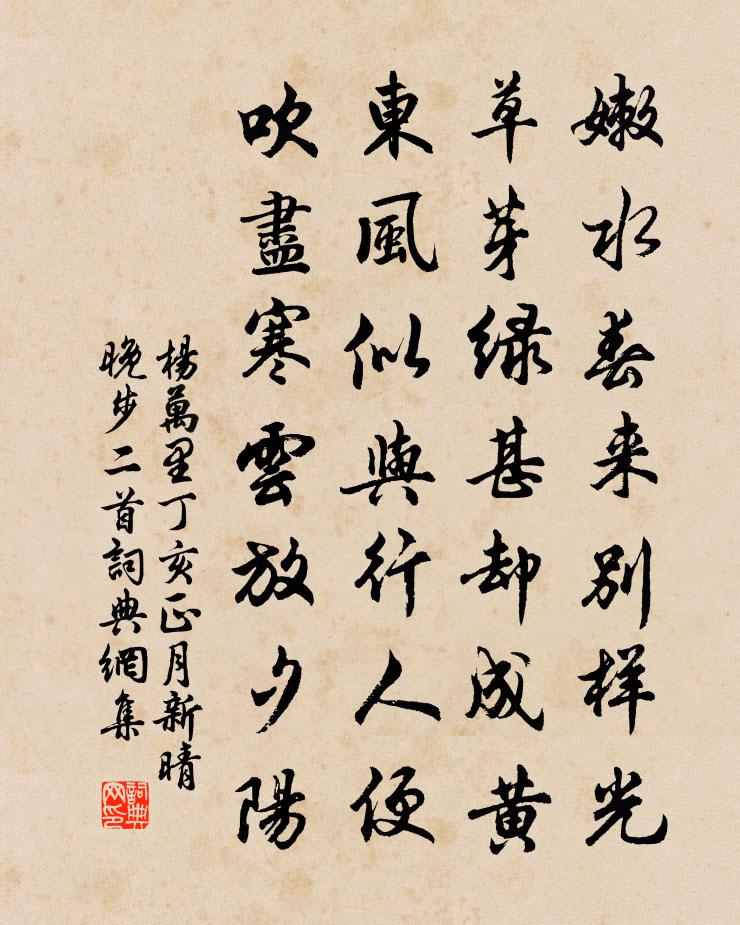 嫩水春来别样光
草芽緑甚却成黄
東風似與行人便
吹盡寒雲放夕陽
楊萬里丁亥正月新晴
晚步二首詞典網集
詞典网印